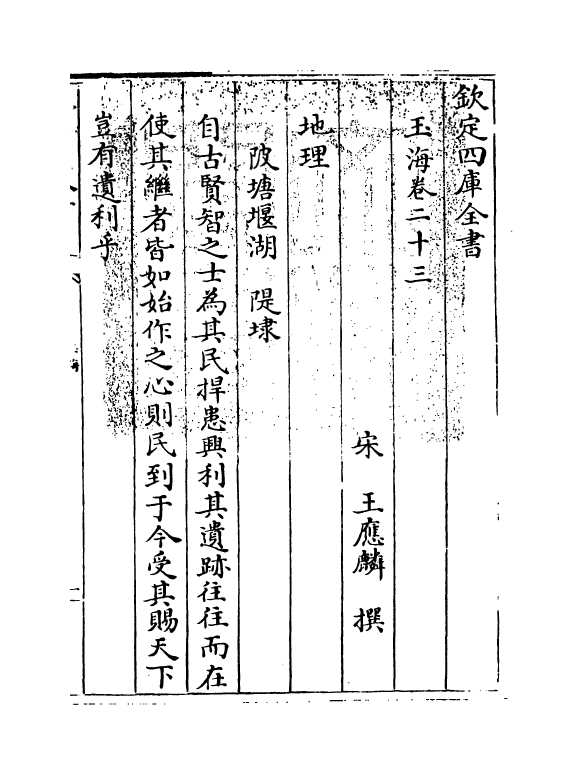 欽定四庫全書
玉海卷二十三
宋　王應麟　撰
地理
陂塘堰湖　隄埭
自古賢智之士為其民捍患興利其遺跡往往而在
使其繼者皆如始作之心則民到于今受其賜天下
豈有遺利乎